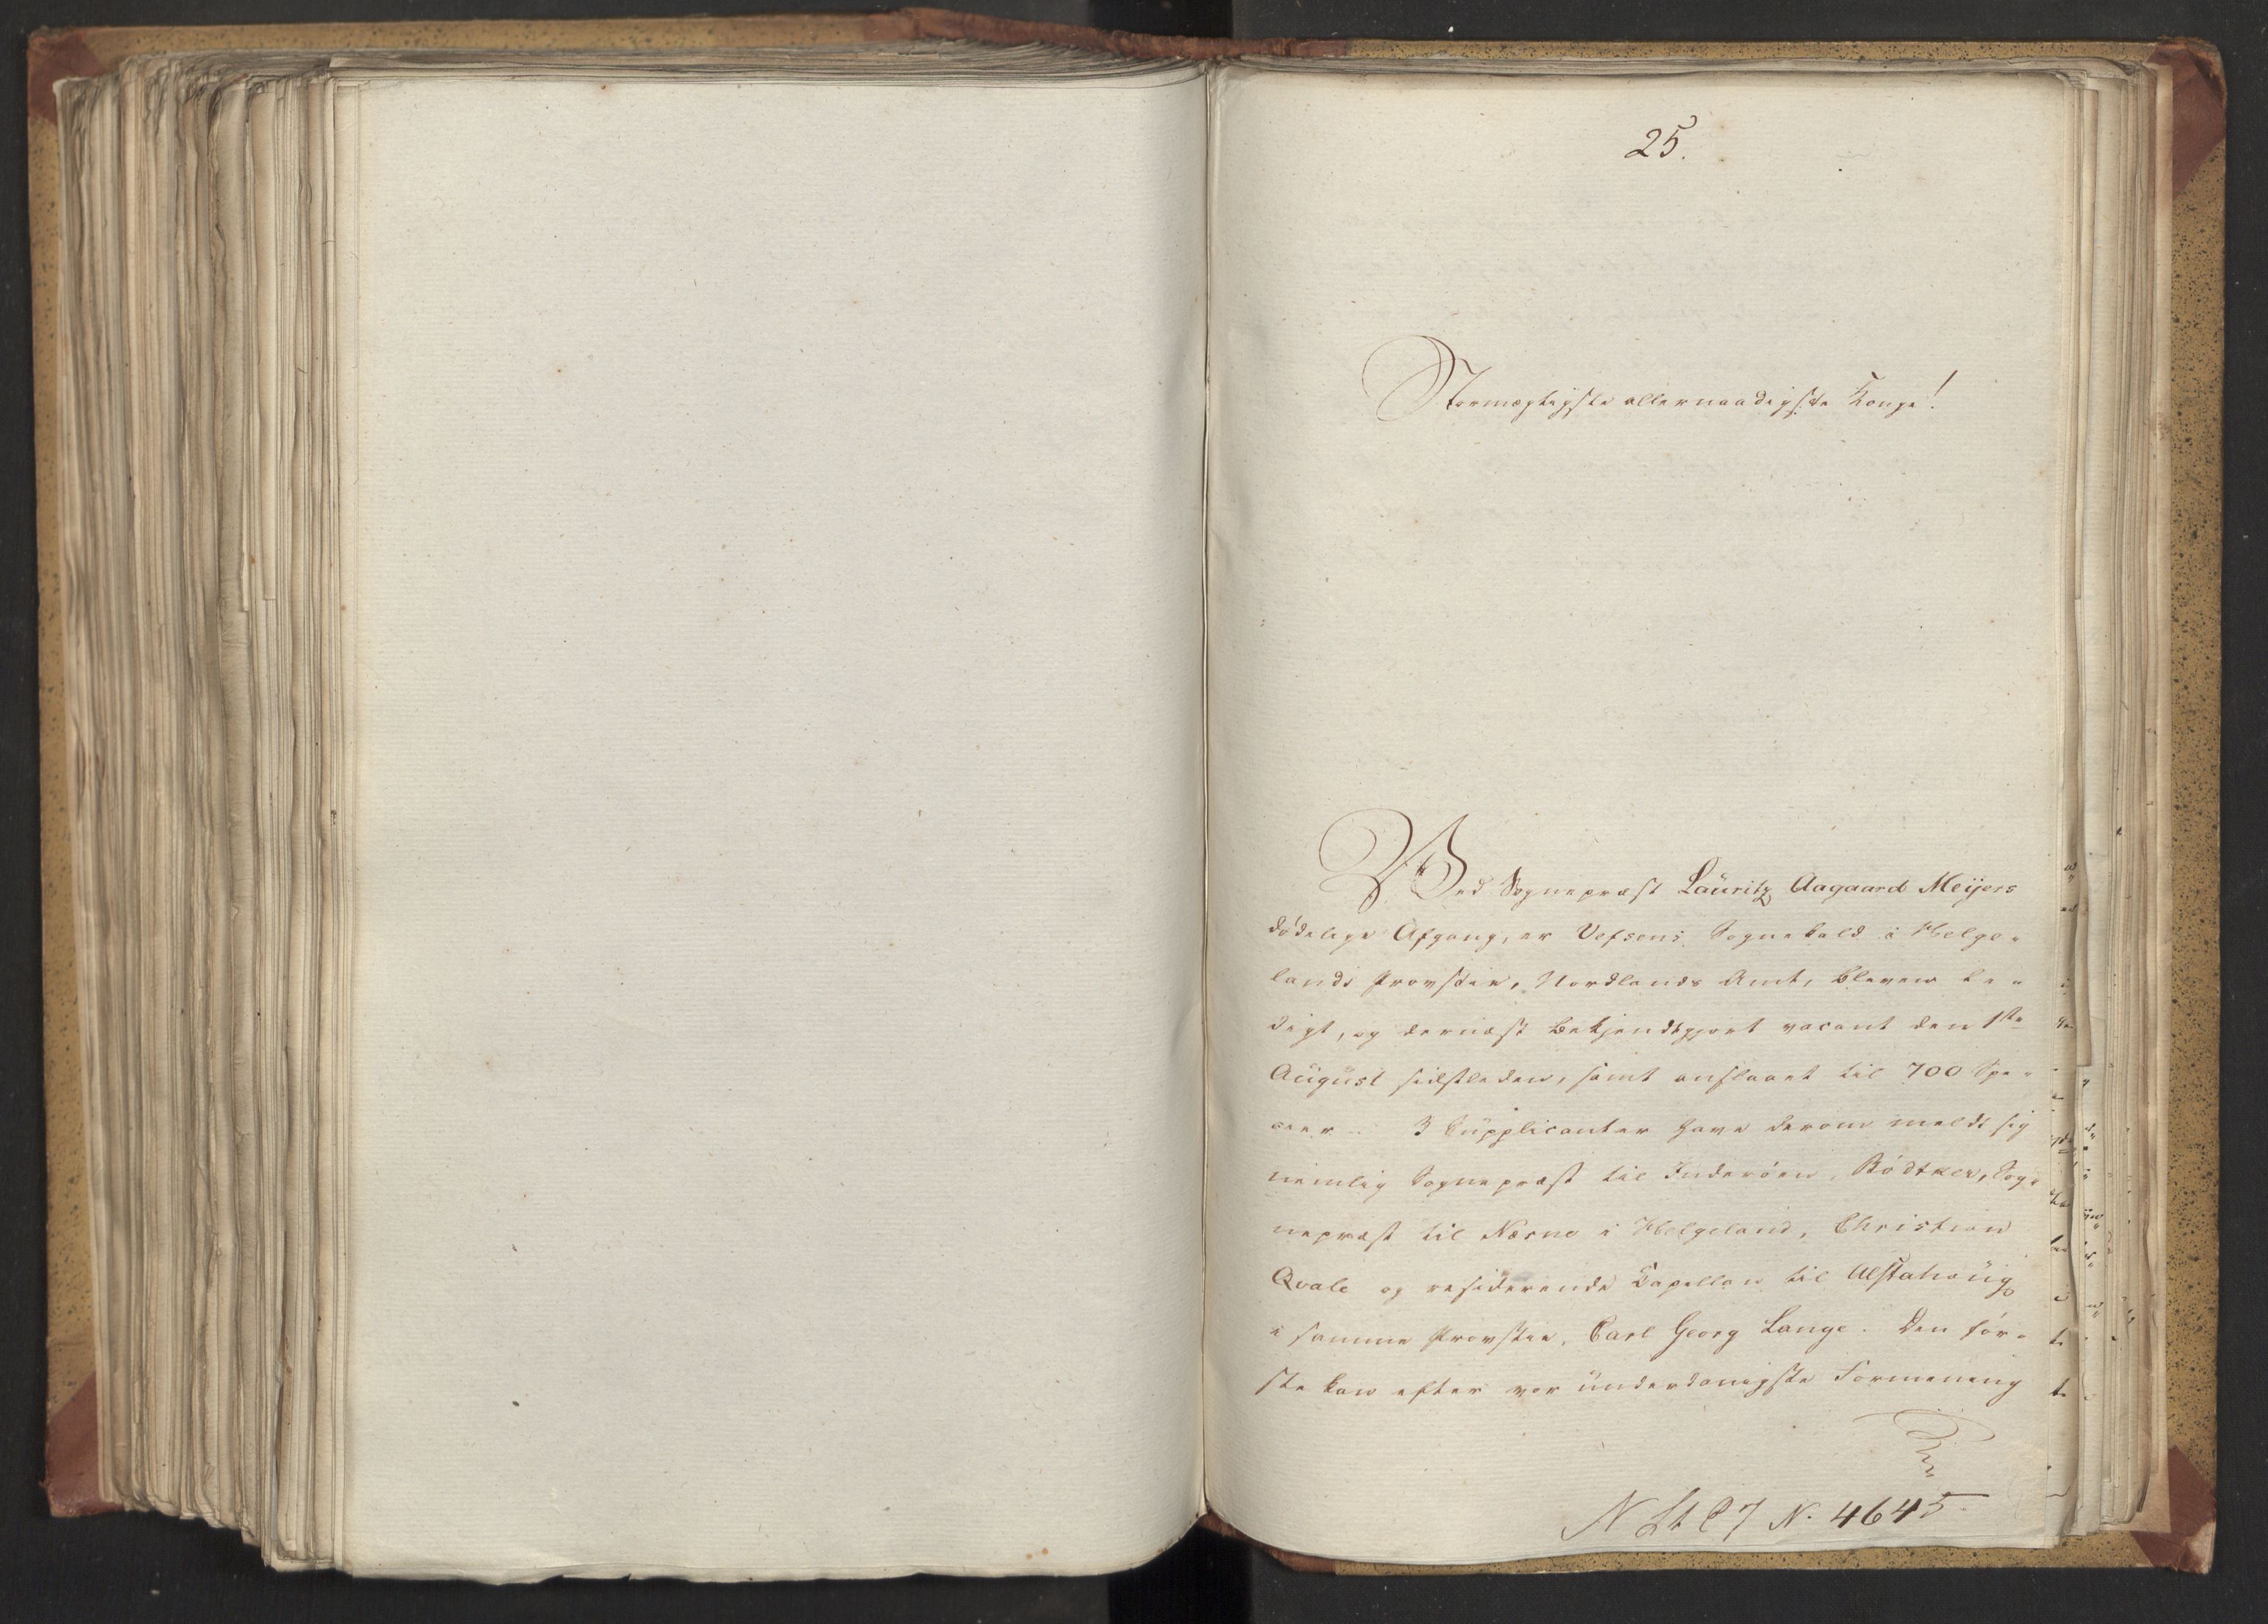 25.
Stormægtigste allernaadigste Konge!
Ved Sognepræst Lauritz Aagaard Meijers
dødelige Afgang, er Vefsens Sognekald i Helge-
lands Provstie, Nordlands Amt, bleven le-
digt, og dernæst bekjendtgjort vacant den 1ste
August sidstleden, samt anslaaet til 700 Spe-
cier. 3 Supplicanter have derom meldt sig
nemlig Sognepræst til Inderøen, Bødtker, Sog-
nepræst til Næsne i Helgeland, Christian
Qvale og residerende Capellan til Alstahoug
i samme Provstie, Carl Georg Lange. Den før-
ste kan efter vor underdanigste Formening
N. 4645